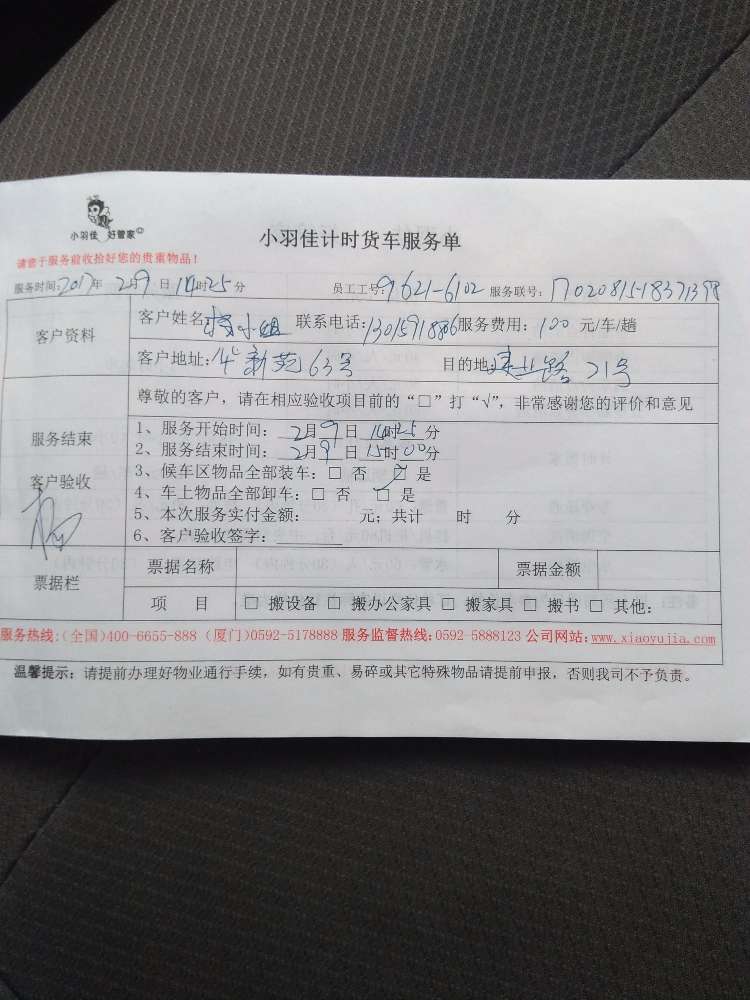 小羽佳 好管家
小羽佳计时货车服务单
请您于服务前收拾好您的贵重物品!
服务时间:2017年 2月9日 14时25分 员工工号:9621-6102 服务联号:
客户资料
客户姓名: 小姐 联系电话: 服务费用:100 元/车/趟
客户地址: 63号 目的地: 路 21号
尊敬的客户,请在相应验收项目前的“□”打“√”,非常感谢您的评价和意见
服务结束
客户验收
1、服务开始时间: 2月9日 14时25分
2、服务结束时间: 2月9日 15时00分
3、候车区物品全部装车:□ 否 □ 是
4、车上物品全部卸车:□ 否 □ 是
5、本次服务实付金额: 元;共计 时 分
6、客户验收签字:
票据栏
票据名称 票据金额
项 目 □ 搬设备 □ 搬办公家具 □ 搬家具 □ 搬书 □ 其他:
服务热线:(全国)400-6655-888 (厦门)0592-5178888 服务监督热线:0592-5888123 公司网站:www.xiaoyujia.com
温馨提示:请提前办理好物业通行手续,如有贵重、易碎或其它特殊物品请提前申报,否则我司不予负责。